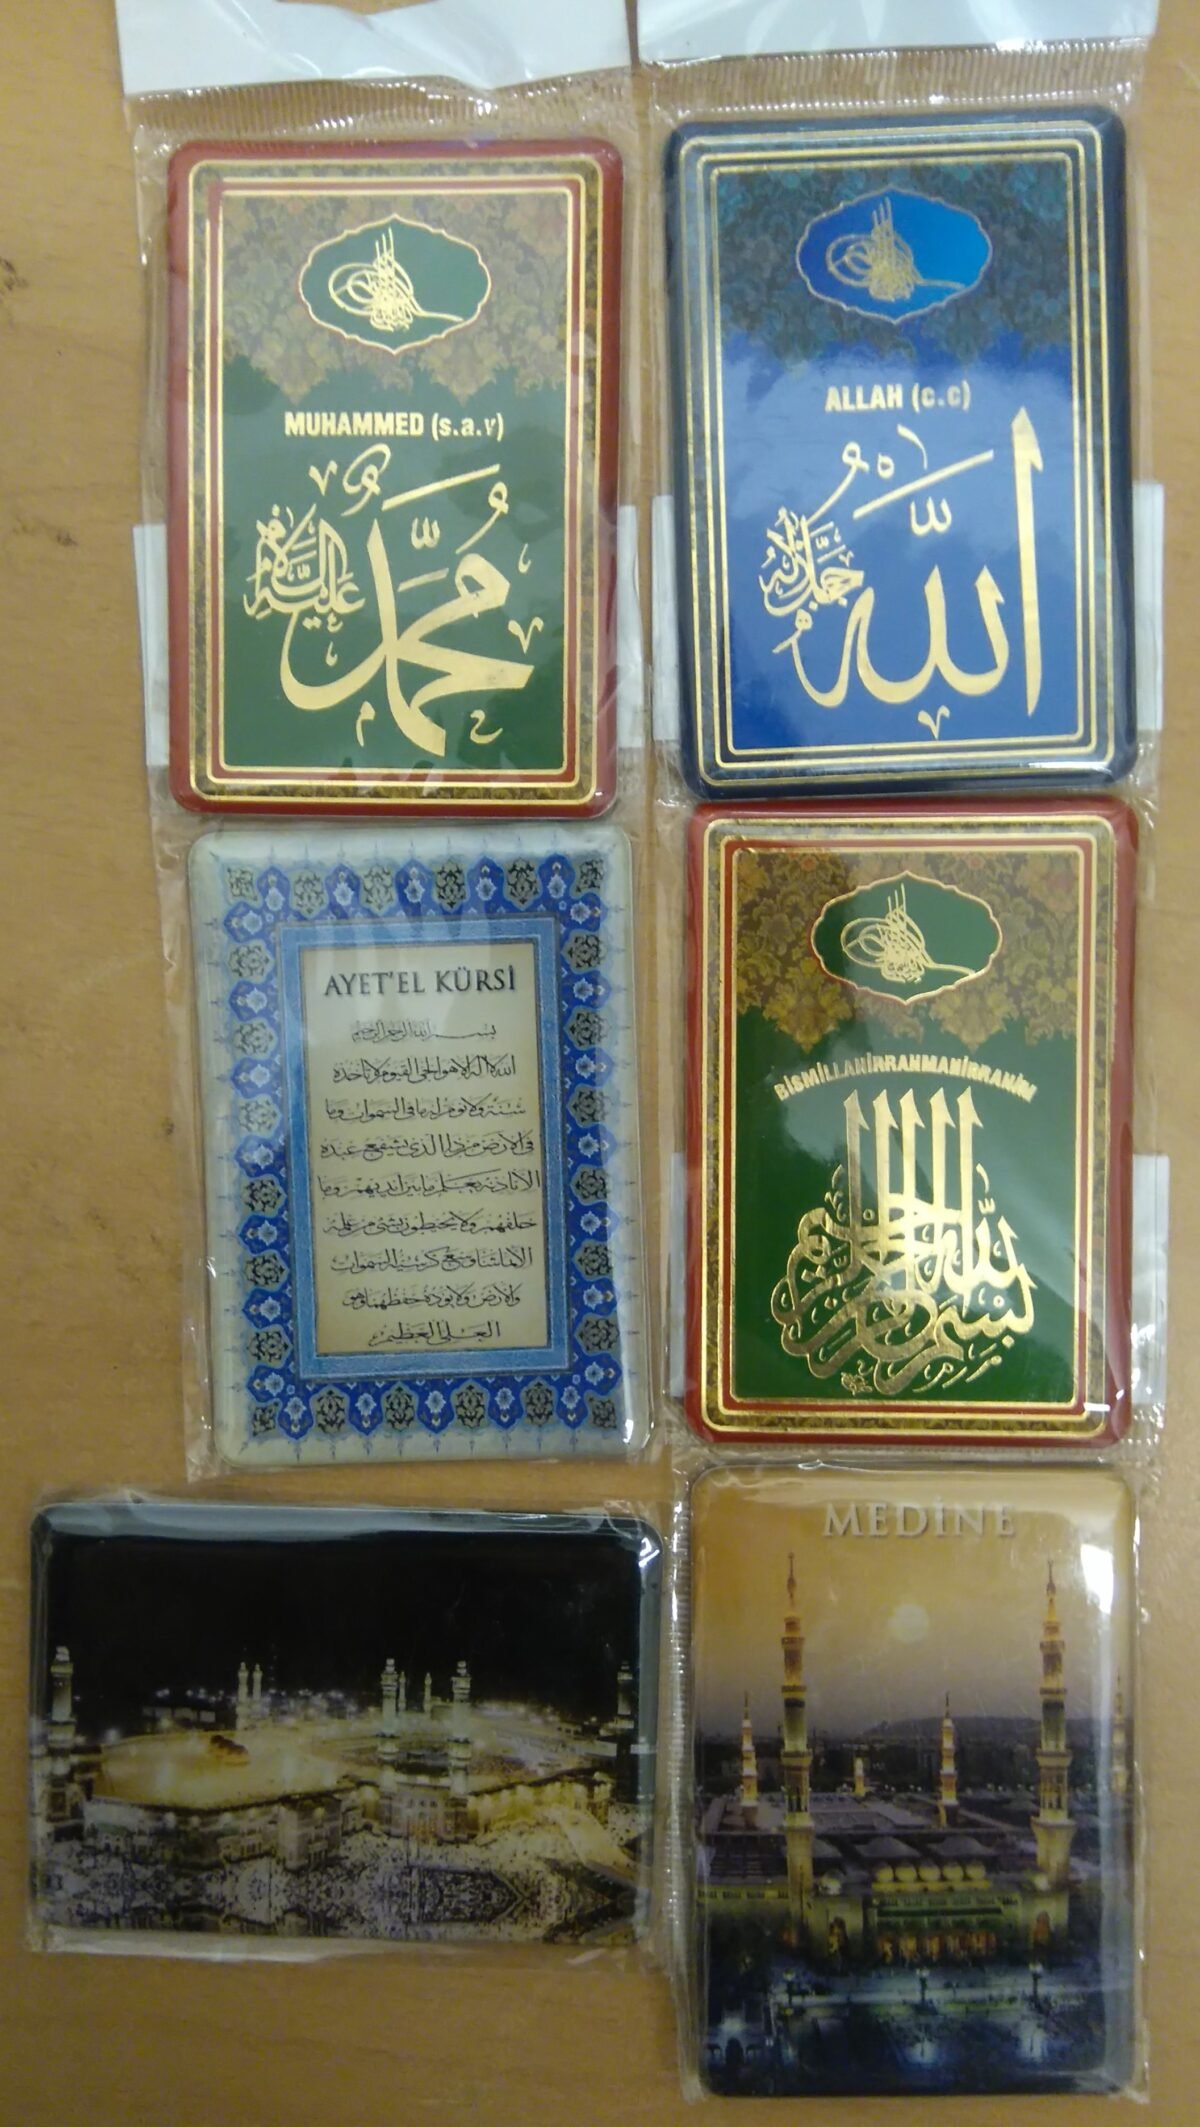 MUHAMMED (s.a.v)
محمد
عليه السلام
ALLAH (c.c)
الله
جل جلاله
AYET'EL KÜRSİ
بسم الله الرحمن الرحيم
الله لا اله الا هو الحي القيوم لا تأخذه
سنة ولا نوم له ما في السموات وما
في الارض من ذا الذي يشفع عنده
الا باذنه يعلم ما بين ايديهم وما
خلفهم ولا يحيطون بشئ من علمه
الا بما شاء وسع كرسيه السموات
والارض ولا يؤده حفظهما وهو
العلي العظيم
BİSMİLLAHİRRAHMANİRRAHİM
بسم الله الرحمن الرحيم
MEDİNE